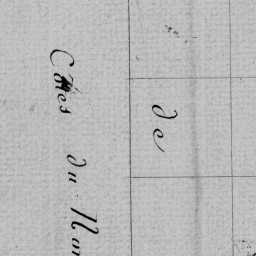 de
Côtes du Nor